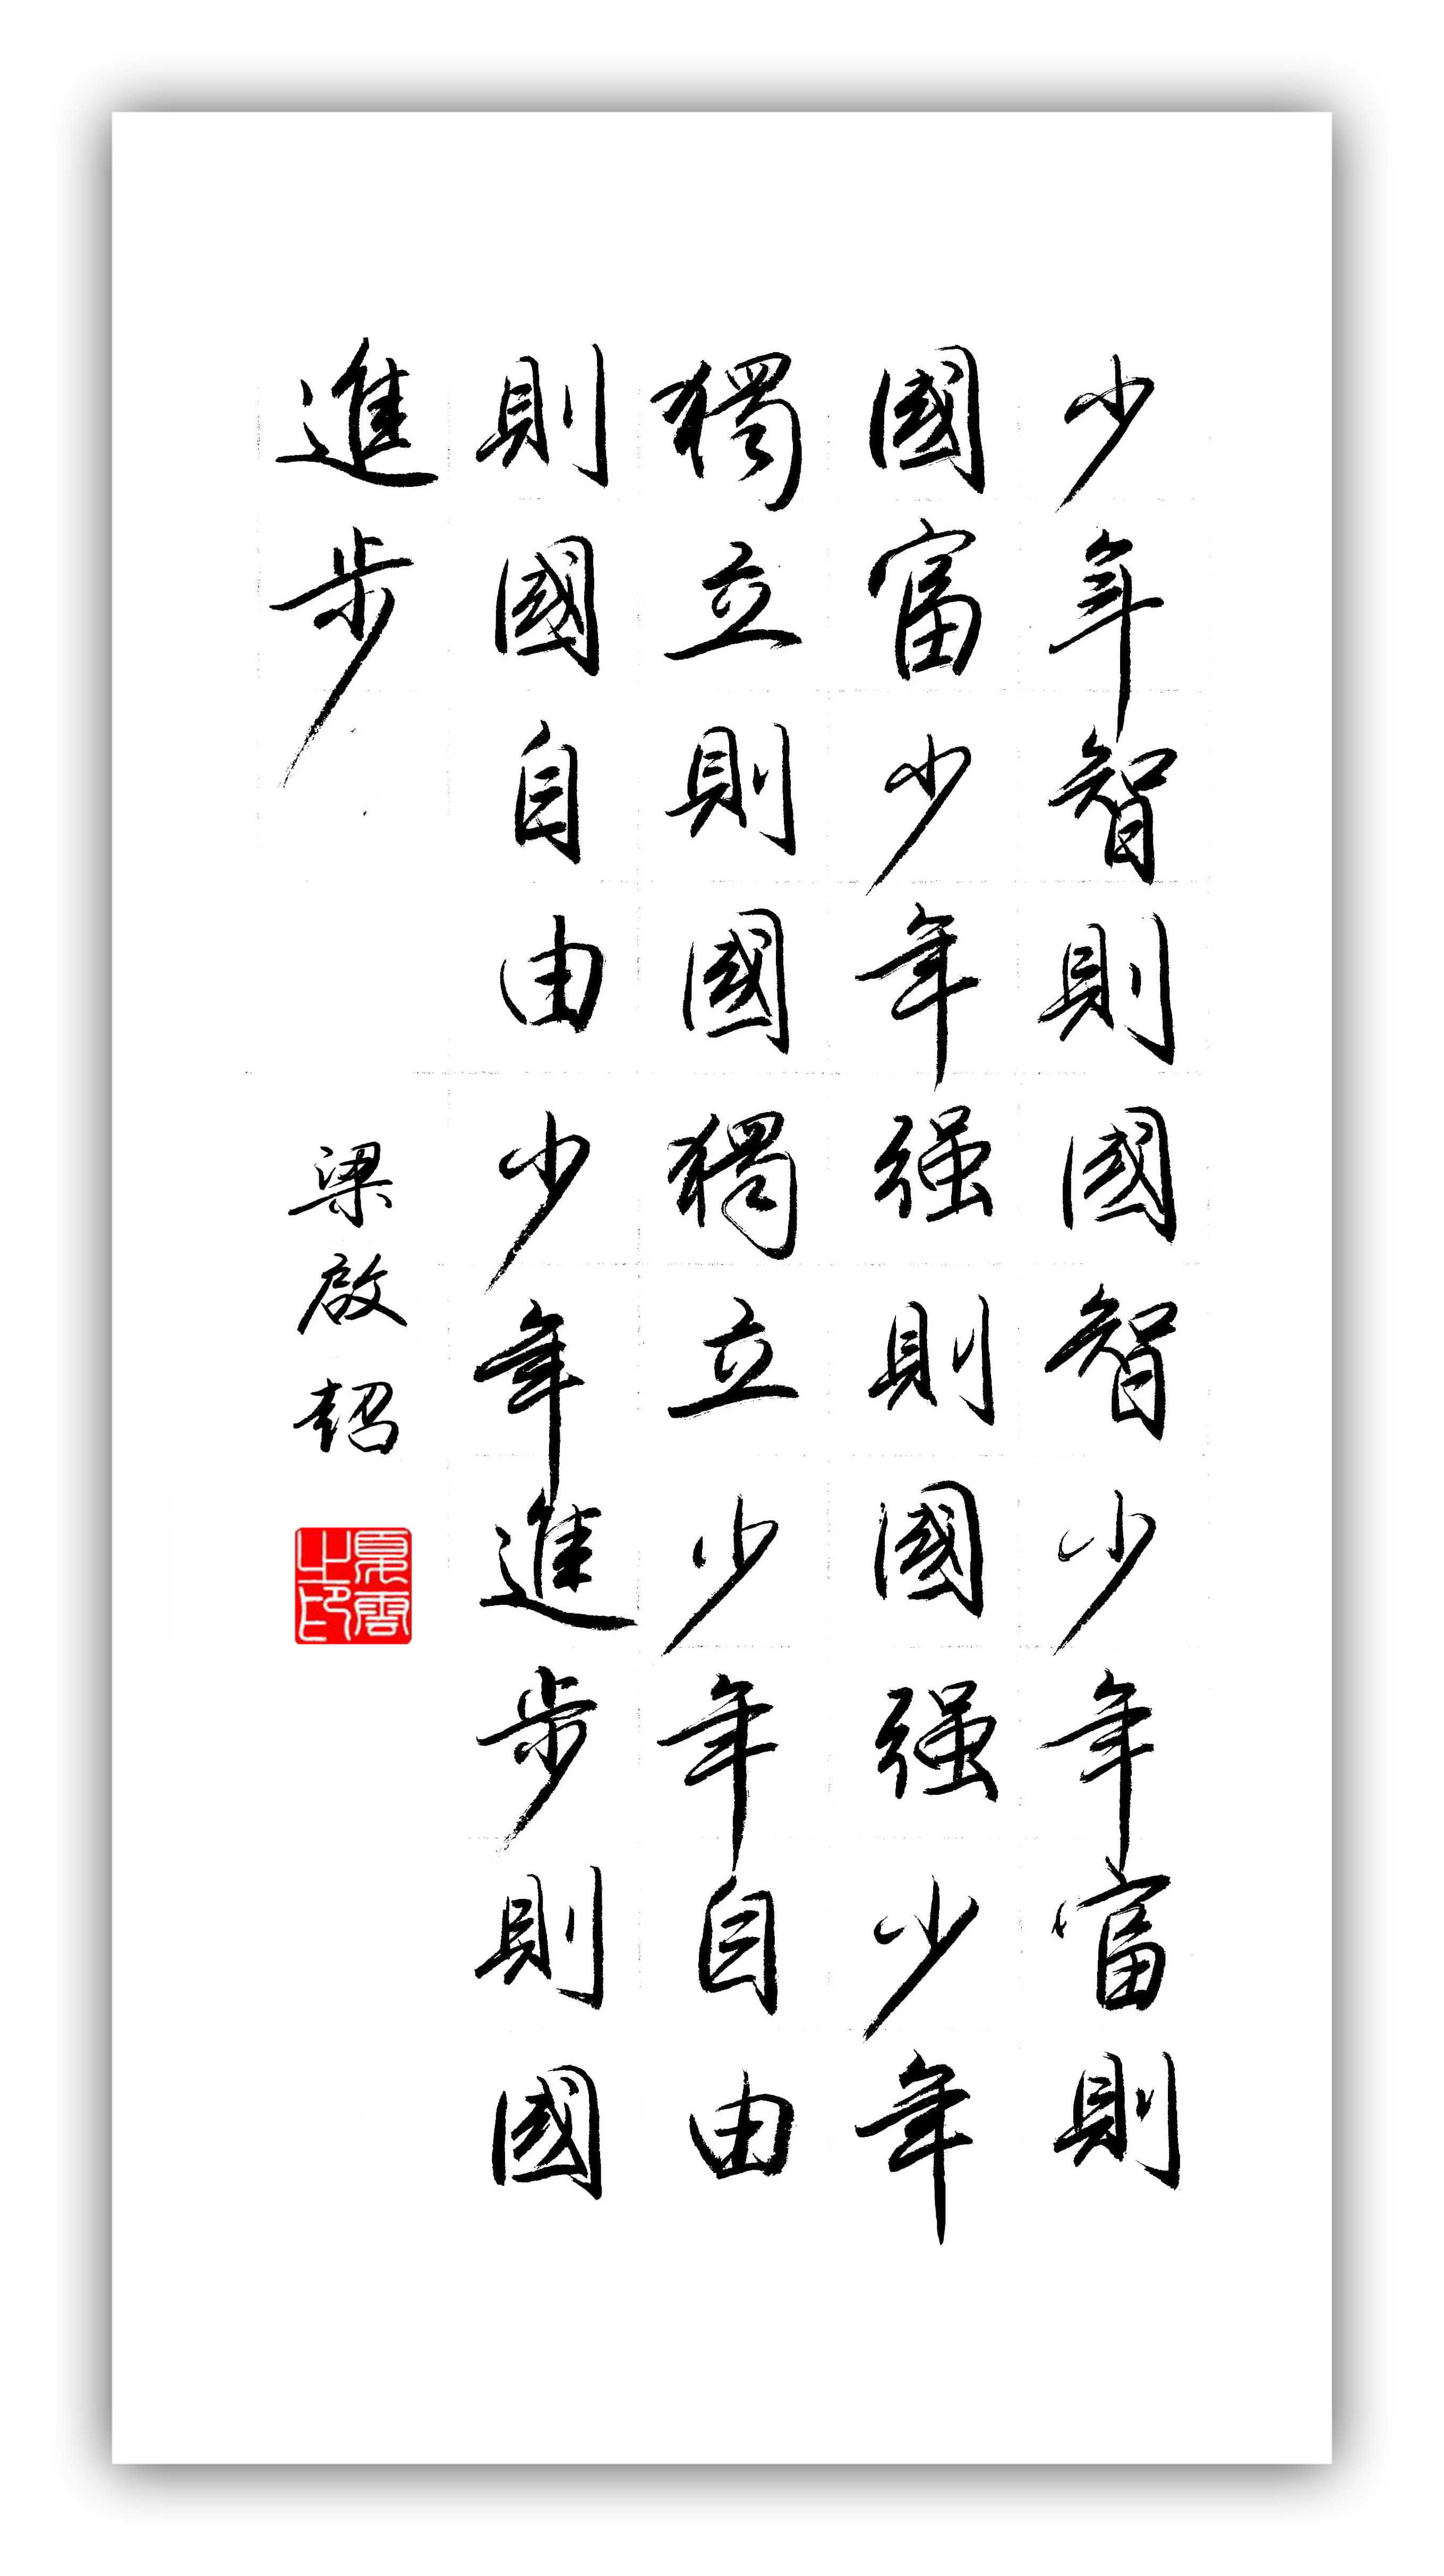 少年智則國智少年富則
國富少年强則國强少年
獨立則國獨立少年自由
則國自由少年進步則國
進步
梁啟超
夏雲之印